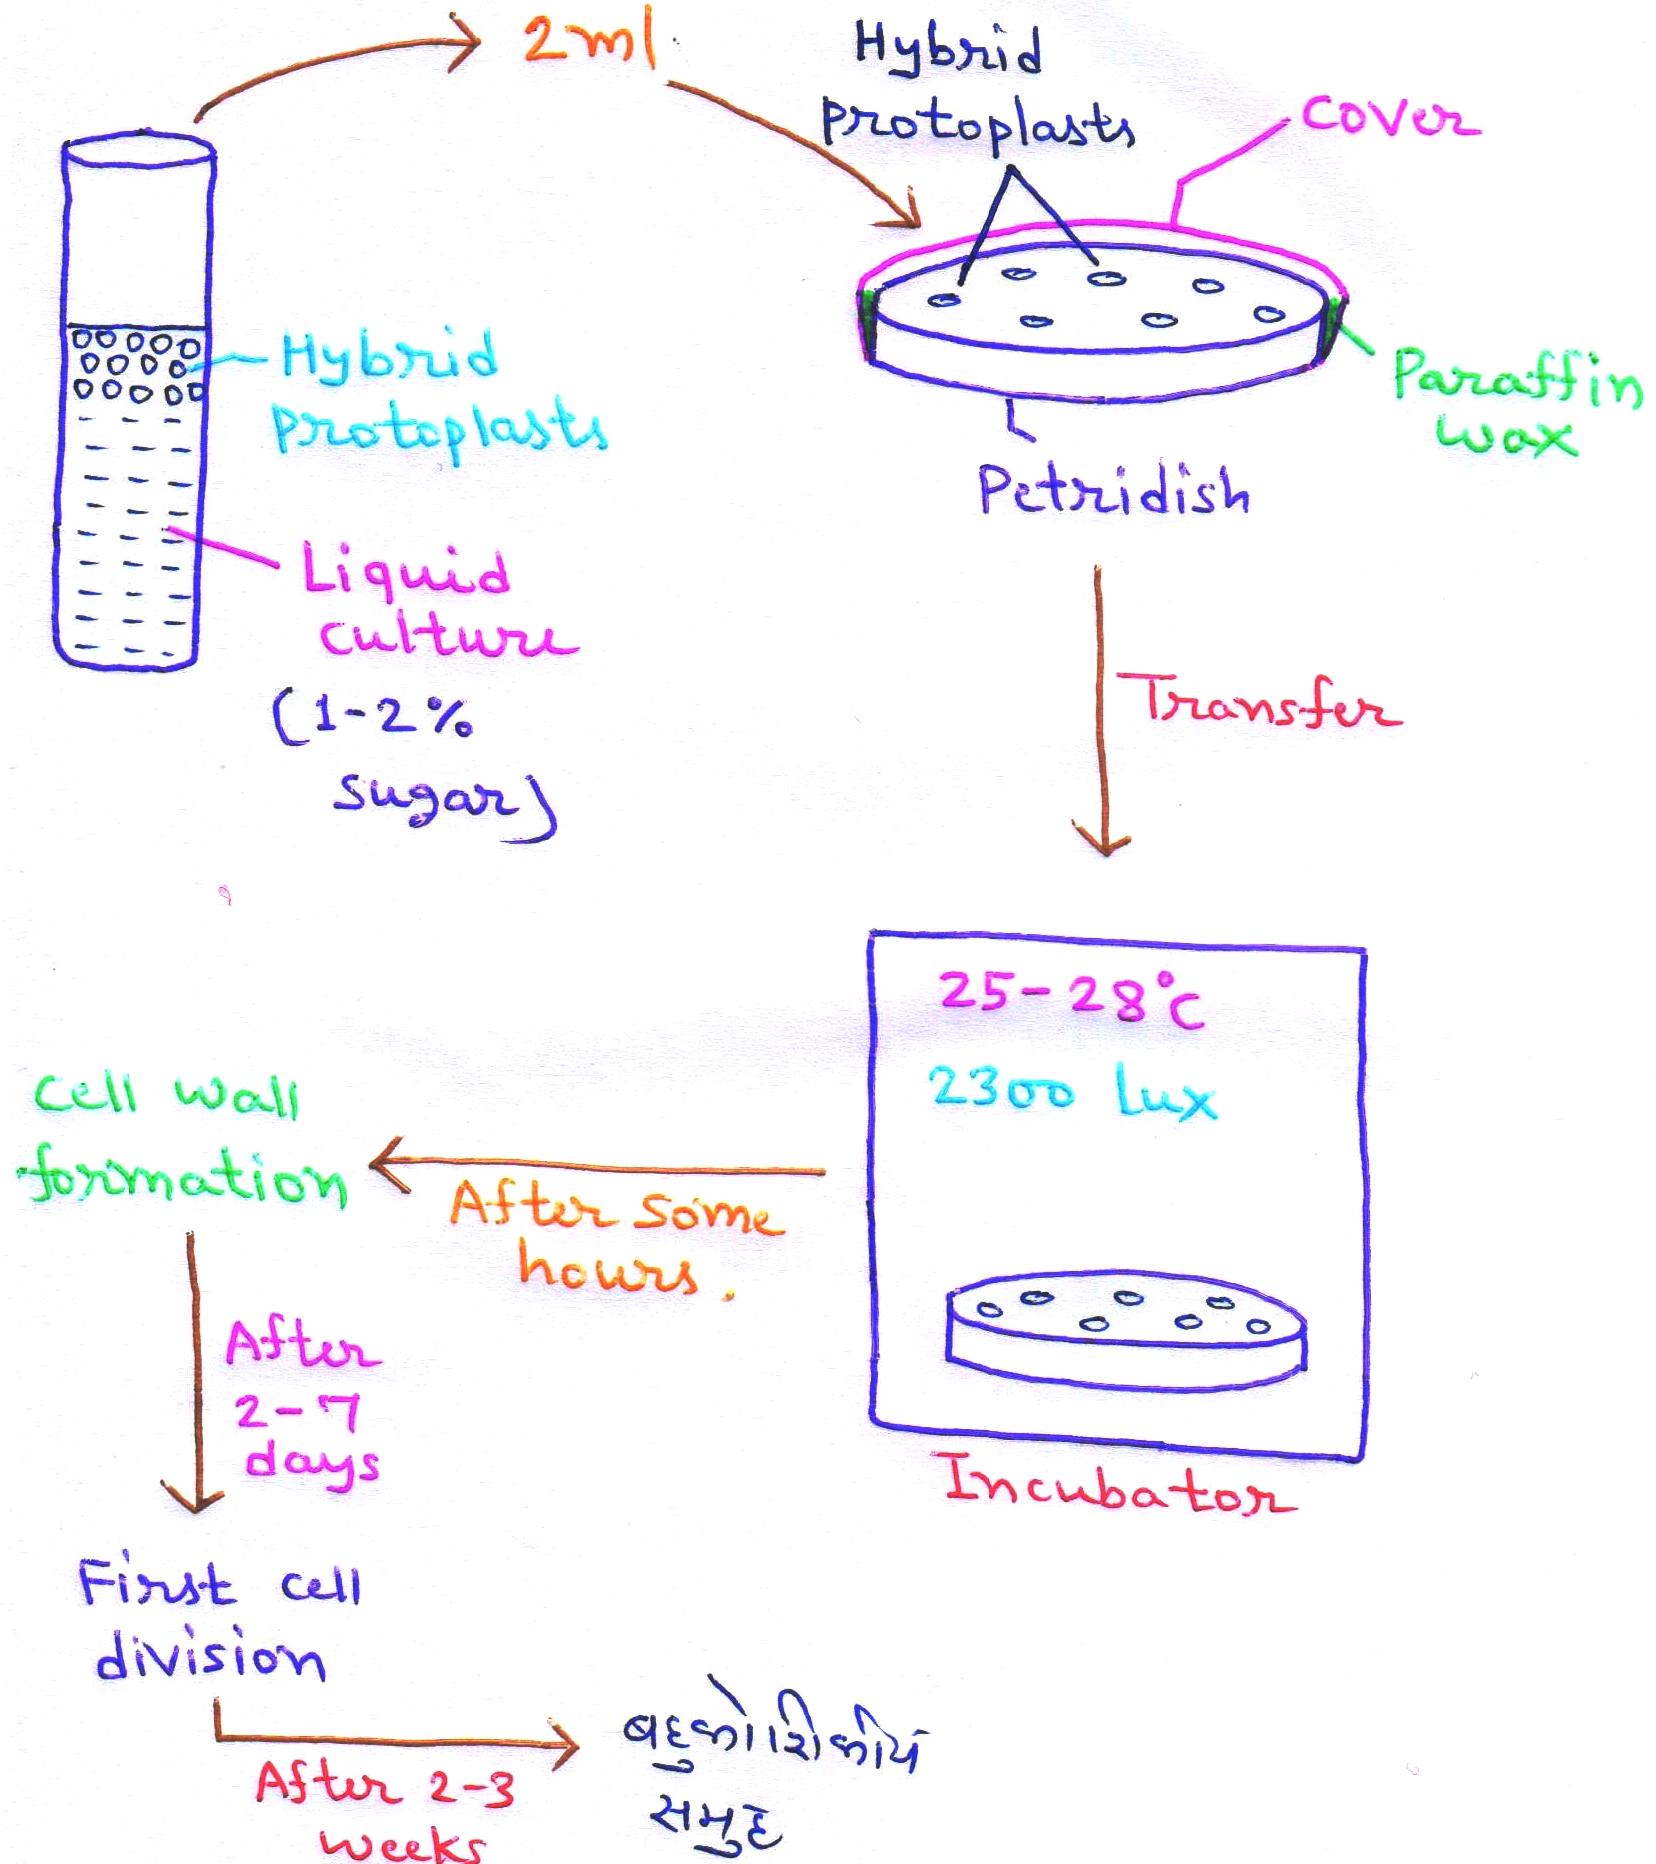 2ml.
Hybrid
protoplasts
cover
Hybrid
protoplasts
Paraffin
wax
Petridish
Liquid
culture
(1-2%
sugar)
Transfer
25-28°c
2300 lux
Incubator
After some
hours.
cell wall
formation
After
2-7
days
First cell
division
After 2-3
weeks
બહુકોશિકીય
સમુહ